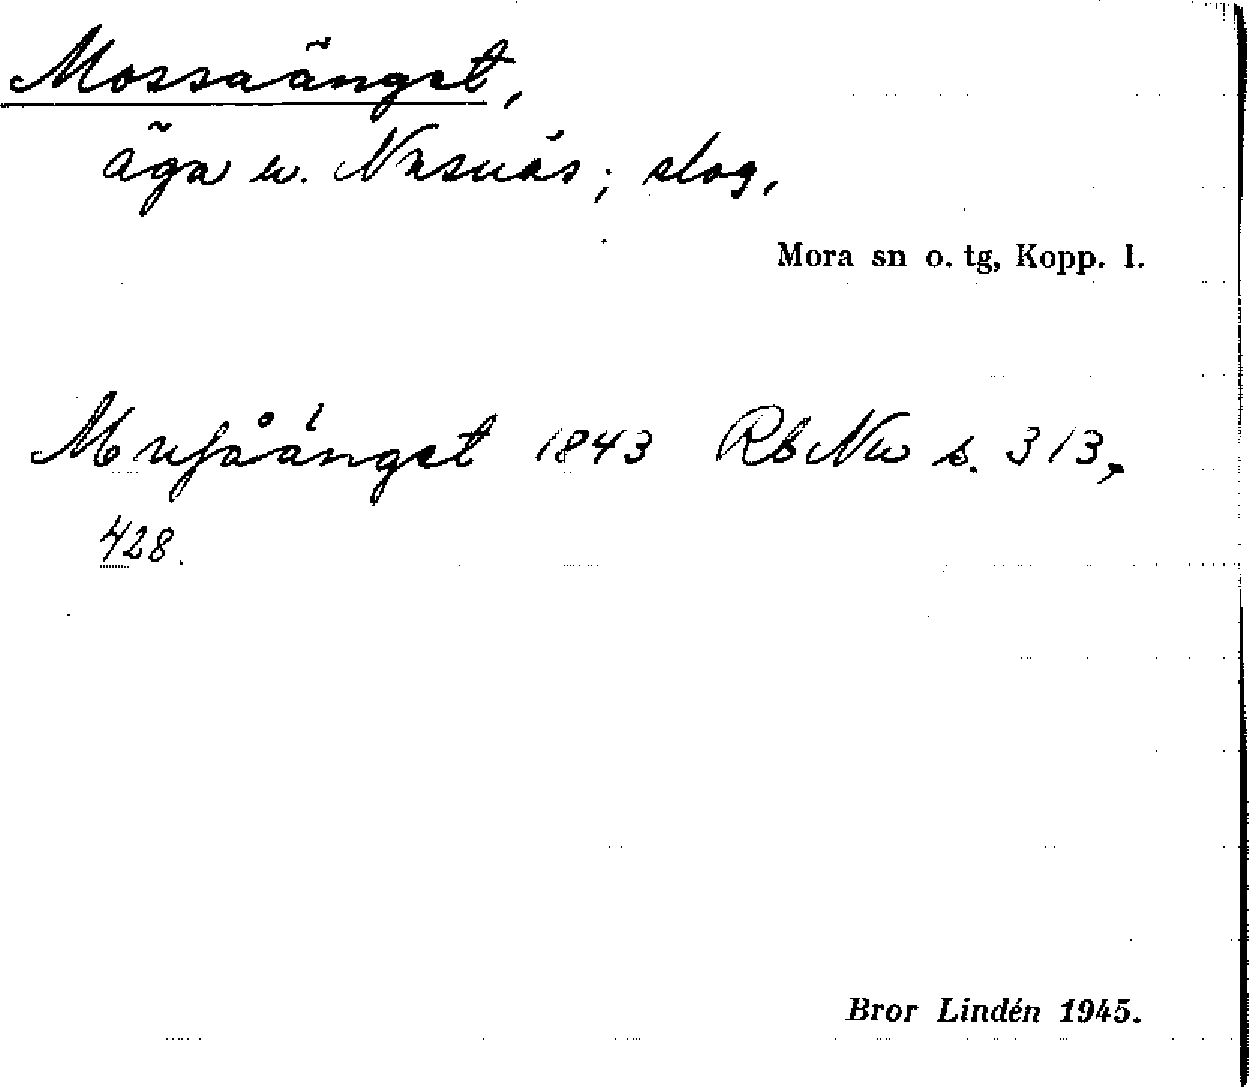 Mossaänget,
äga u. Nusnäs; slog,
Mora sn o. tg, Kopp. l.
Musåänget 1843 Rb Nu s. 313,
428.
Bror Lindén 1945.